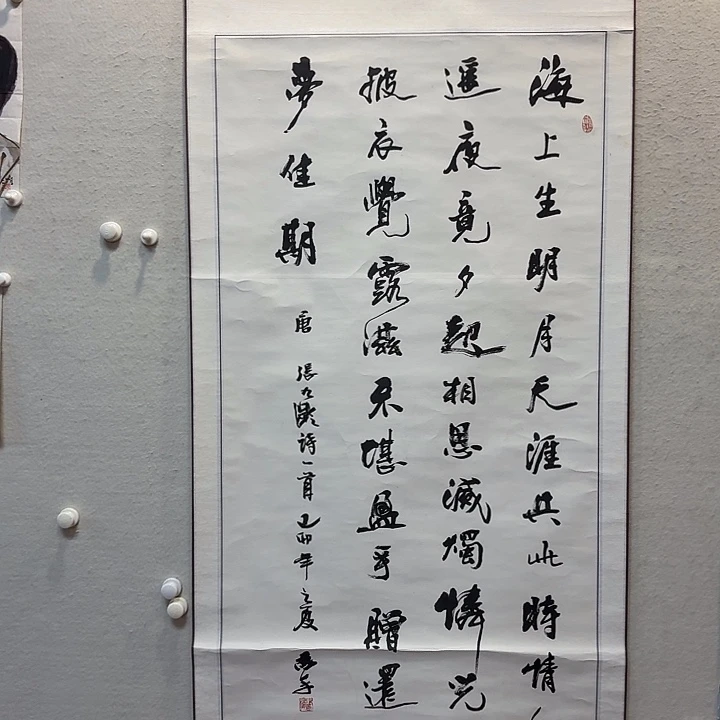 海上生明月天涯共此時情
遥夜竟夕起相思滅燭憐光
披衣覺露滋不堪盈手贈還
夢佳期
唐 張九齡詩一首 卯年之夏